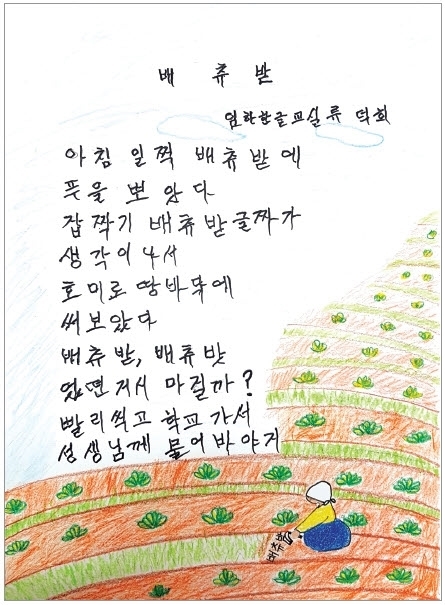 배 츄 받
한글교실 류 덕희
아침 일찍 배츄받에
푸을 뽀 았다
갑짝기 배츄받글짜가
생각이나서
호미로 땅바닥에
써보았다
배츄받, 배츄밧
었떤거시 마걸까?
빨리씩고 학교가서
성생님께 물어바야지